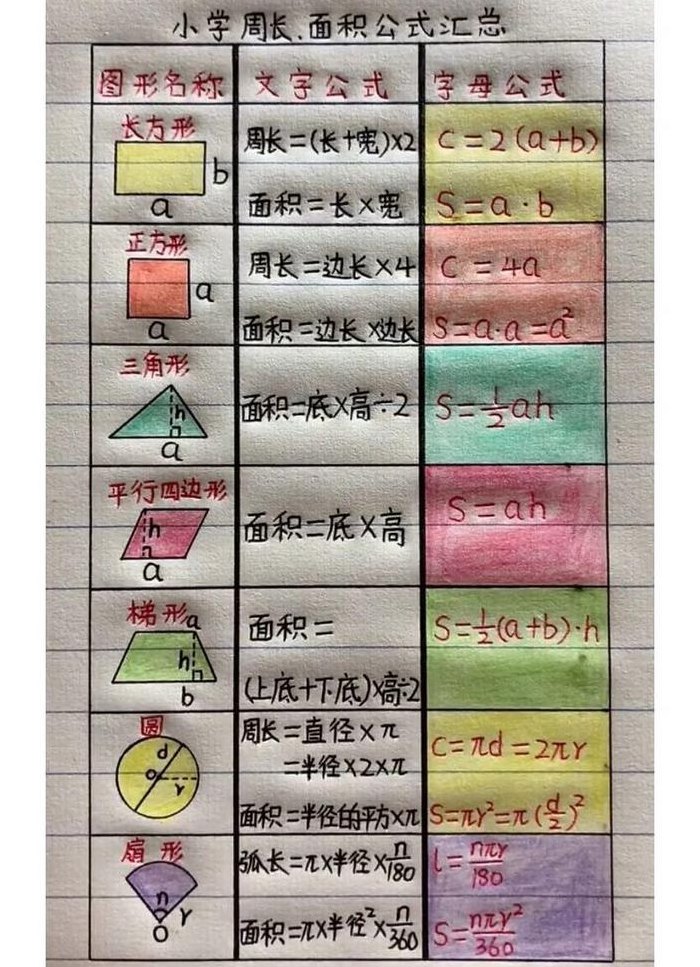 小学周长、面积公式汇总
图形名称 文字公式 字母公式
长方形
b
a
周长=(长+宽)×2
面积=长×宽
C=2(a+b)
S=a·b
正方形
a
a
周长=边长×4
面积=边长×边长
C=4a
S=a·a=a²
三角形
h
a
面积=底×高÷2
S=½ah
平行四边形
h
a
面积=底×高
S=ah
梯形
a
h
b
面积=
(上底+下底)×高÷2
S=½(a+b)·h
圆
d
o
r
周长=直径×π
=半径×2×π
面积=半径的平方×π
C=πd=2πr
S=πr²=π(d/2)²
扇形
n
r
O
弧长=π×半径×n/180
面积=π×半径²×n/360
l=nπr/180
S=nπr²/360